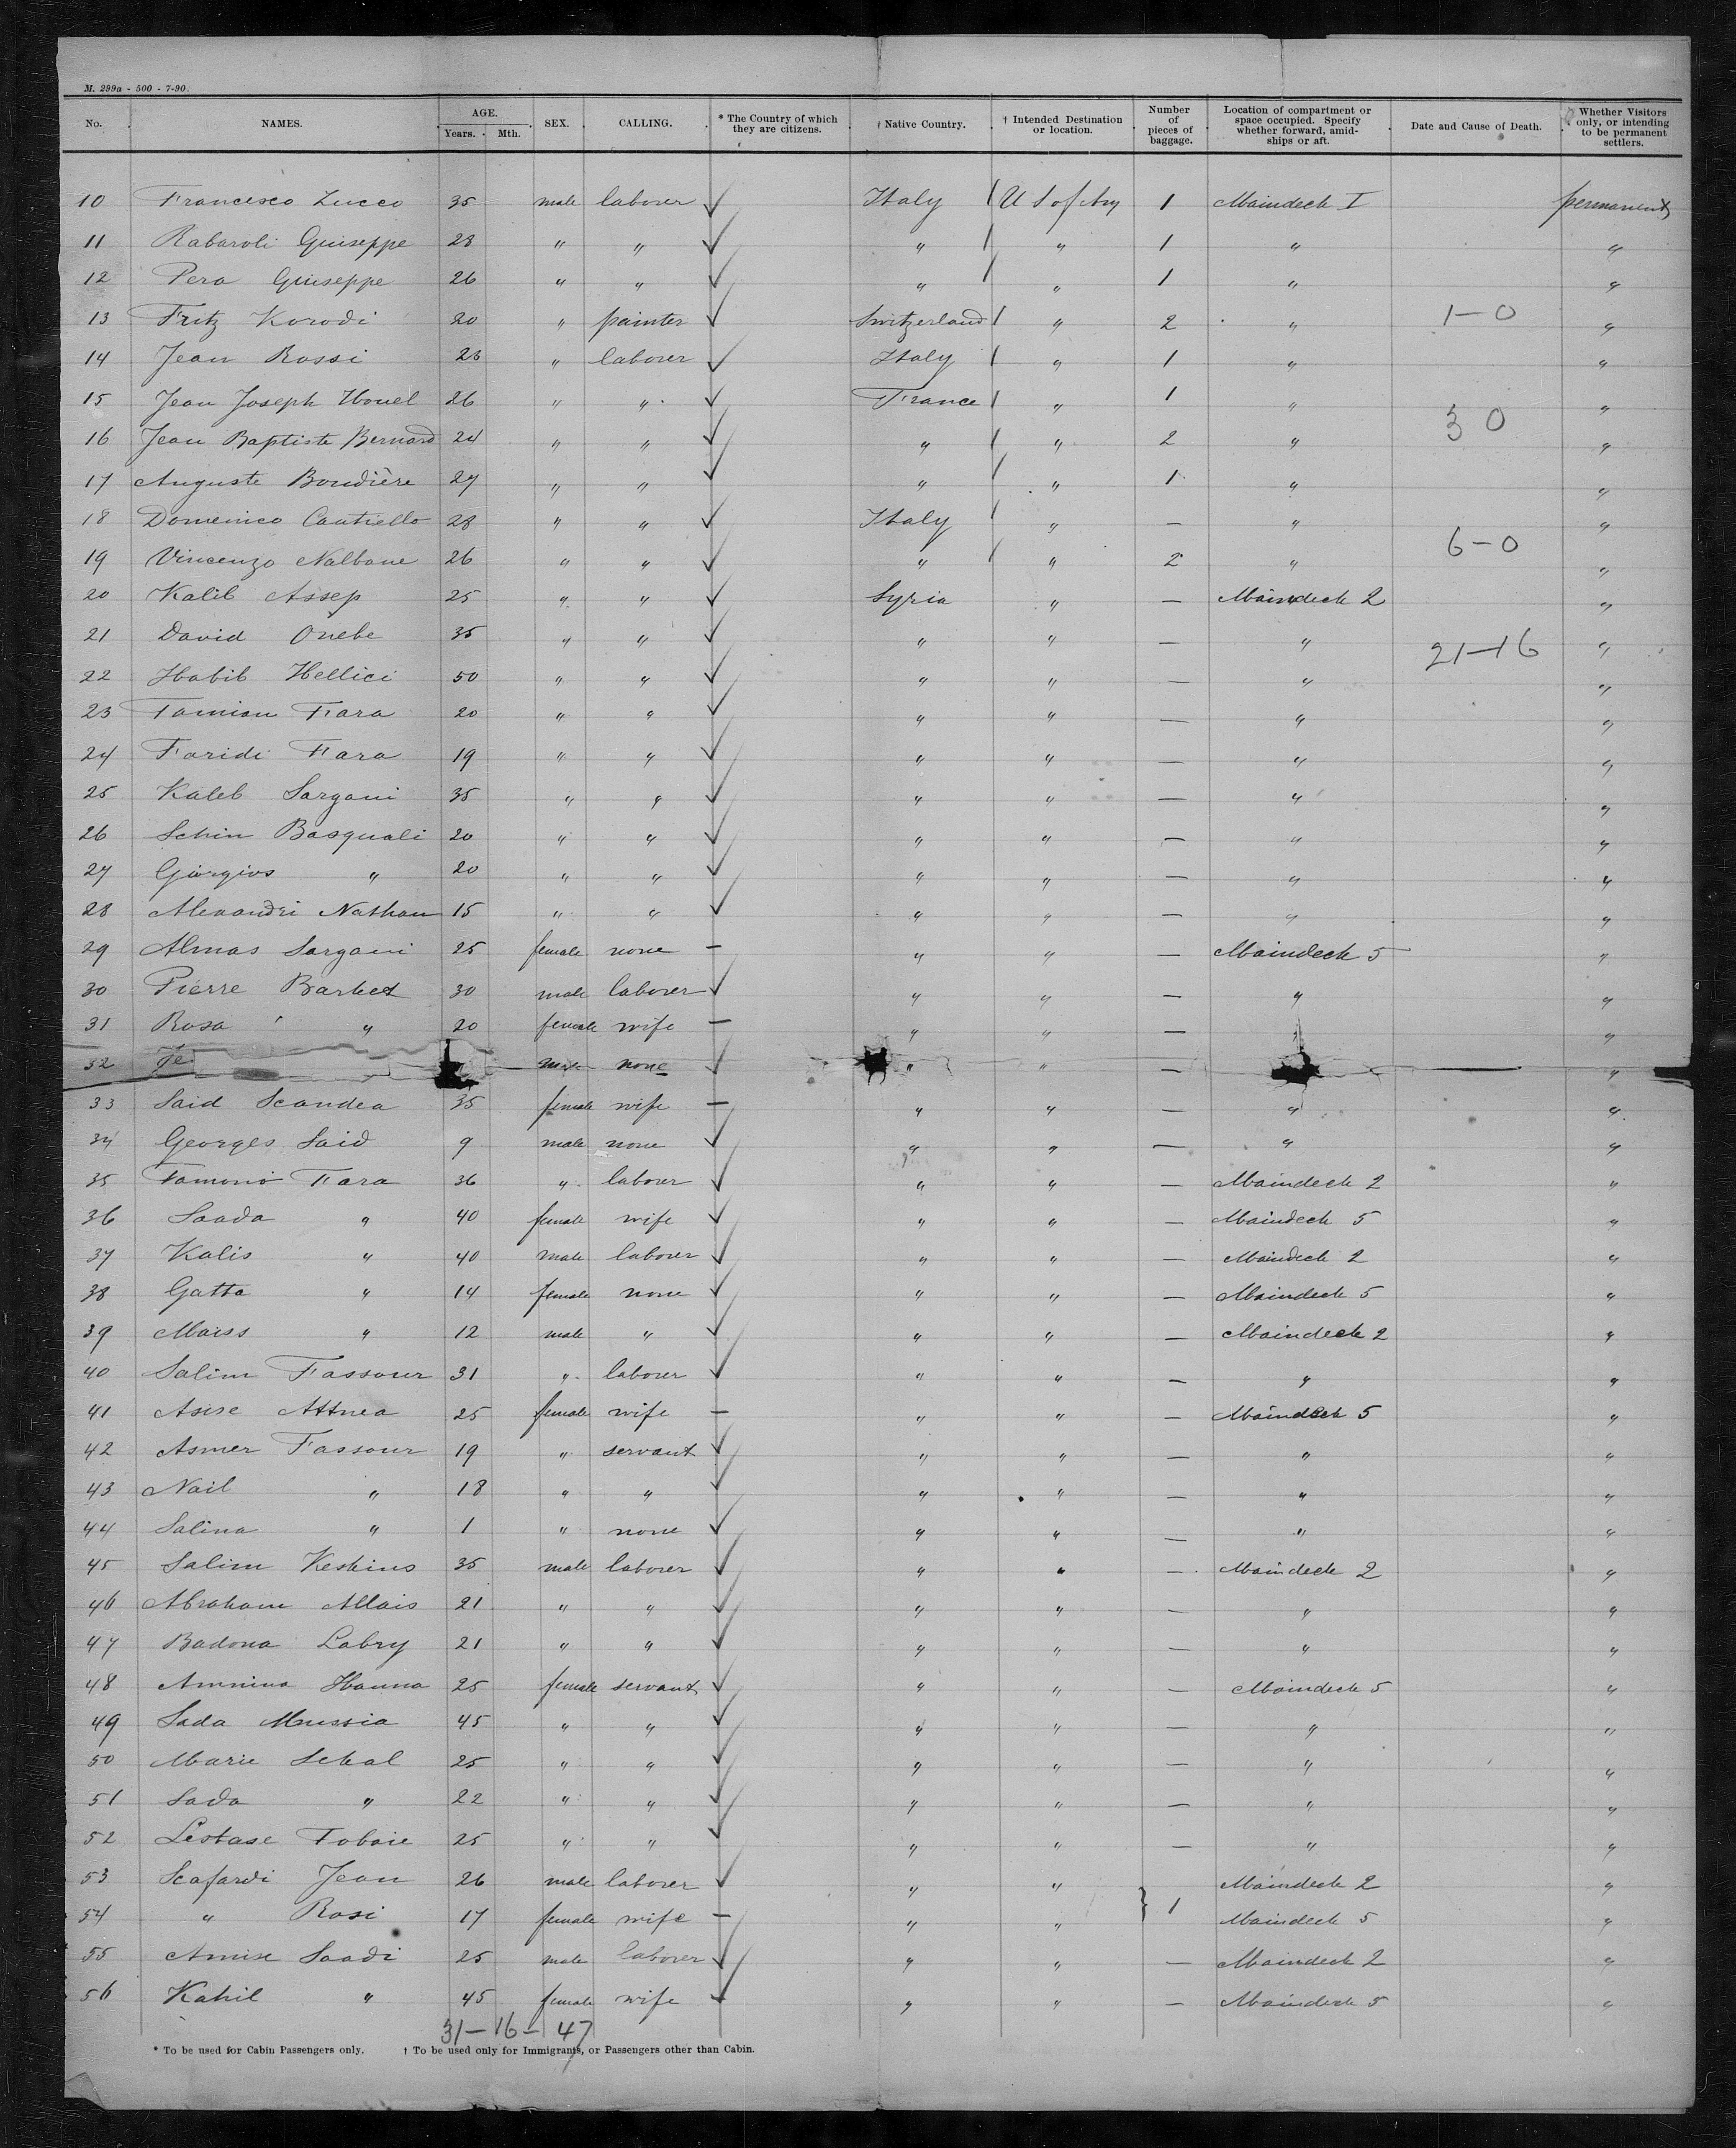 M. 299a - 500 - 7-90.
No. NAMES. AGE. Years. Mth. SEX. CALLING. * The Country of which they are citizens. † Native Country. † Intended Destination or location. Number of pieces of baggage. Location of compartment or space occupied. Specify whether forward, amidships or aft. Date and Cause of Death. Whether Visitors only, or intending to be permanent settlers.
10 Francesco Zucco 35 male laborer Italy U S of Am 1 Maindeck I permanent
11 Rabaroli Guiseppe 28 " " " " 1 " "
12 Pera Guiseppe 26 " " " " 1 " "
13 Fritz Korodi 20 " painter Switzerland " 2 " 1-0 "
14 Jean Rossi 28 " laborer Italy " 1 " "
15 Jean Joseph 26 " " France " 1 " "
16 Jean Baptiste Bernard 24 " " " " 2 " 3 0 "
17 Auguste Boudière 27 " " " " 1 " "
18 Domenico Cautiello 28 " " Italy " — " "
19 Vincenzo Nalbone 26 " " " " 2 " 6-0 "
20 Kalil Assep 25 " " Syria " — Maindeck 2 "
21 David Onebe 35 " " " " — " 21-16 "
22 Habib Hellici 50 " " " " — " "
23 Tamian Fara 20 " " " " — " "
24 Faridi Fara 19 " " " " — " "
25 Kaleb Sargani 35 " " " " — " "
26 Schin Basquali 20 " " " " — " "
27 Giorgios " 20 " " " " — " "
28 Alexandri Nathan 15 " " " " — " "
29 Almas Sargani 25 female none — " " — Maindeck 5 "
30 Pierre Barket 30 male laborer " " — " "
31 Rosa " 20 female wife — " " — "
32 Je male none " " — "
33 Said Scandea 35 female wife — " " — " "
34 Georges Said 9 male none " " — " "
35 Famonio Fara 36 " laborer " " — Maindeck 2 "
36 Saada " 40 female wife " " — Maindeck 5 "
37 Kalis " 40 male laborer " " — Maindeck 2 "
38 Gatta " 14 female none " " — Maindeck 5 "
39 Maiss " 12 male " " " — Maindeck 2 "
40 Salim Fassour 31 " laborer " " — " "
41 Asise Attnea 25 female wife — " " — Maindeck 5 "
42 Asmer Fassour 19 " servant " " — " "
43 Nail " 18 " " " " — " "
44 Salina " 1 " none " " — " "
45 Salim Keskins 35 male laborer " " — Maindeck 2 "
46 Abraham Allais 21 " " " " — " "
47 Badona Labry 21 " " " " — " "
48 Amnina Hanna 25 female servant " " — Maindeck 5 "
49 Sada Mussia 45 " " " " — " "
50 Marie Schal 25 " " " " — " "
51 Sada " 22 " " " " — " "
52 Lestase Tobaie 25 " " " " — " "
53 Scafardi Jean 26 male laborer " " } 1 Maindeck 2 "
54 " Rosi 17 female wife — " " Maindeck 5 "
55 Amise Saadi 25 male laborer " " — Maindeck 2 "
56 Kahil " 45 female wife " " — Maindeck 5 "
31-16-47
* To be used for Cabin Passengers only. † To be used only for Immigrants, or Passengers other than Cabin.